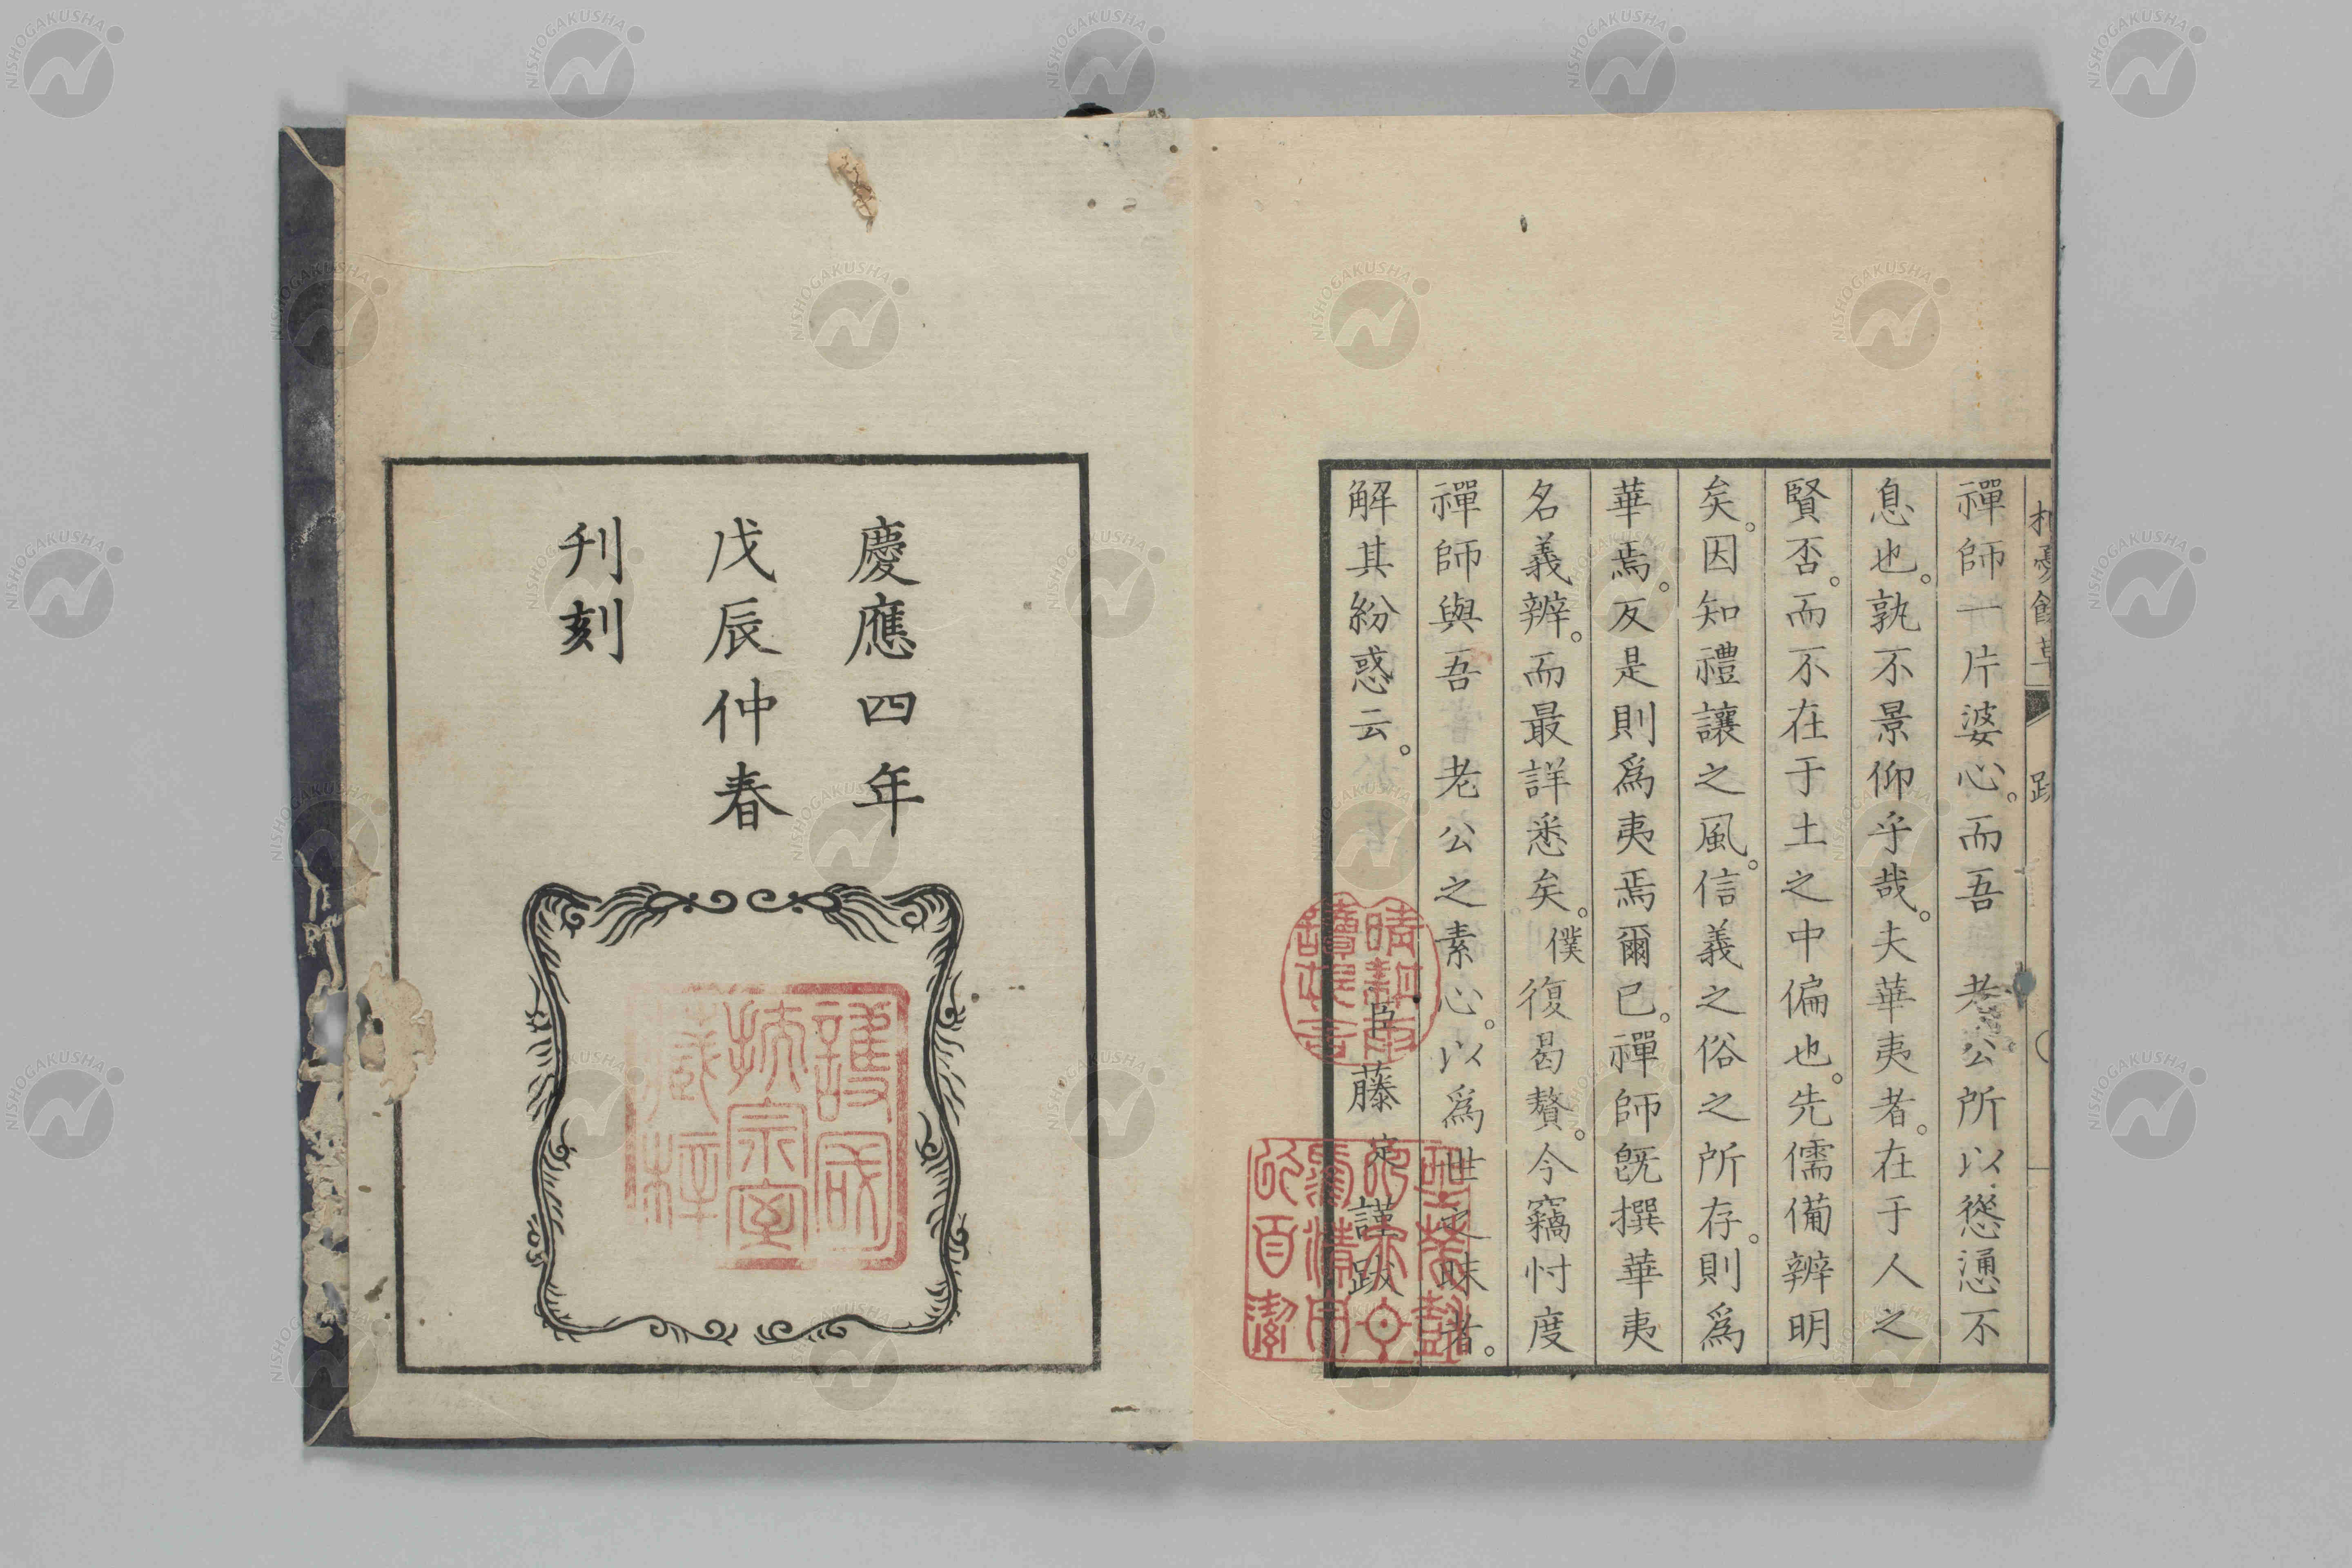 禪師一片婆心。而吾 老公所以慫慂不
息也。孰不景仰乎哉。夫華夷者。在于人之
賢否。而不在于土之中偏也。先儒備辨明
矣。因知禮讓之風。信義之俗之所存。則爲
華焉。反是則爲夷焉爾已。禪師既撰華夷
名義辨。而最詳悉矣。僕復曷贅。今竊忖度
禪師與吾 老公之素心。以爲世之昧者。
解其紛惑云。
臣 藤 定 謹跋
慶應四年
戊辰仲春
刊刻
護國
扶宗室
藏梓
NISHOGAKUSHA